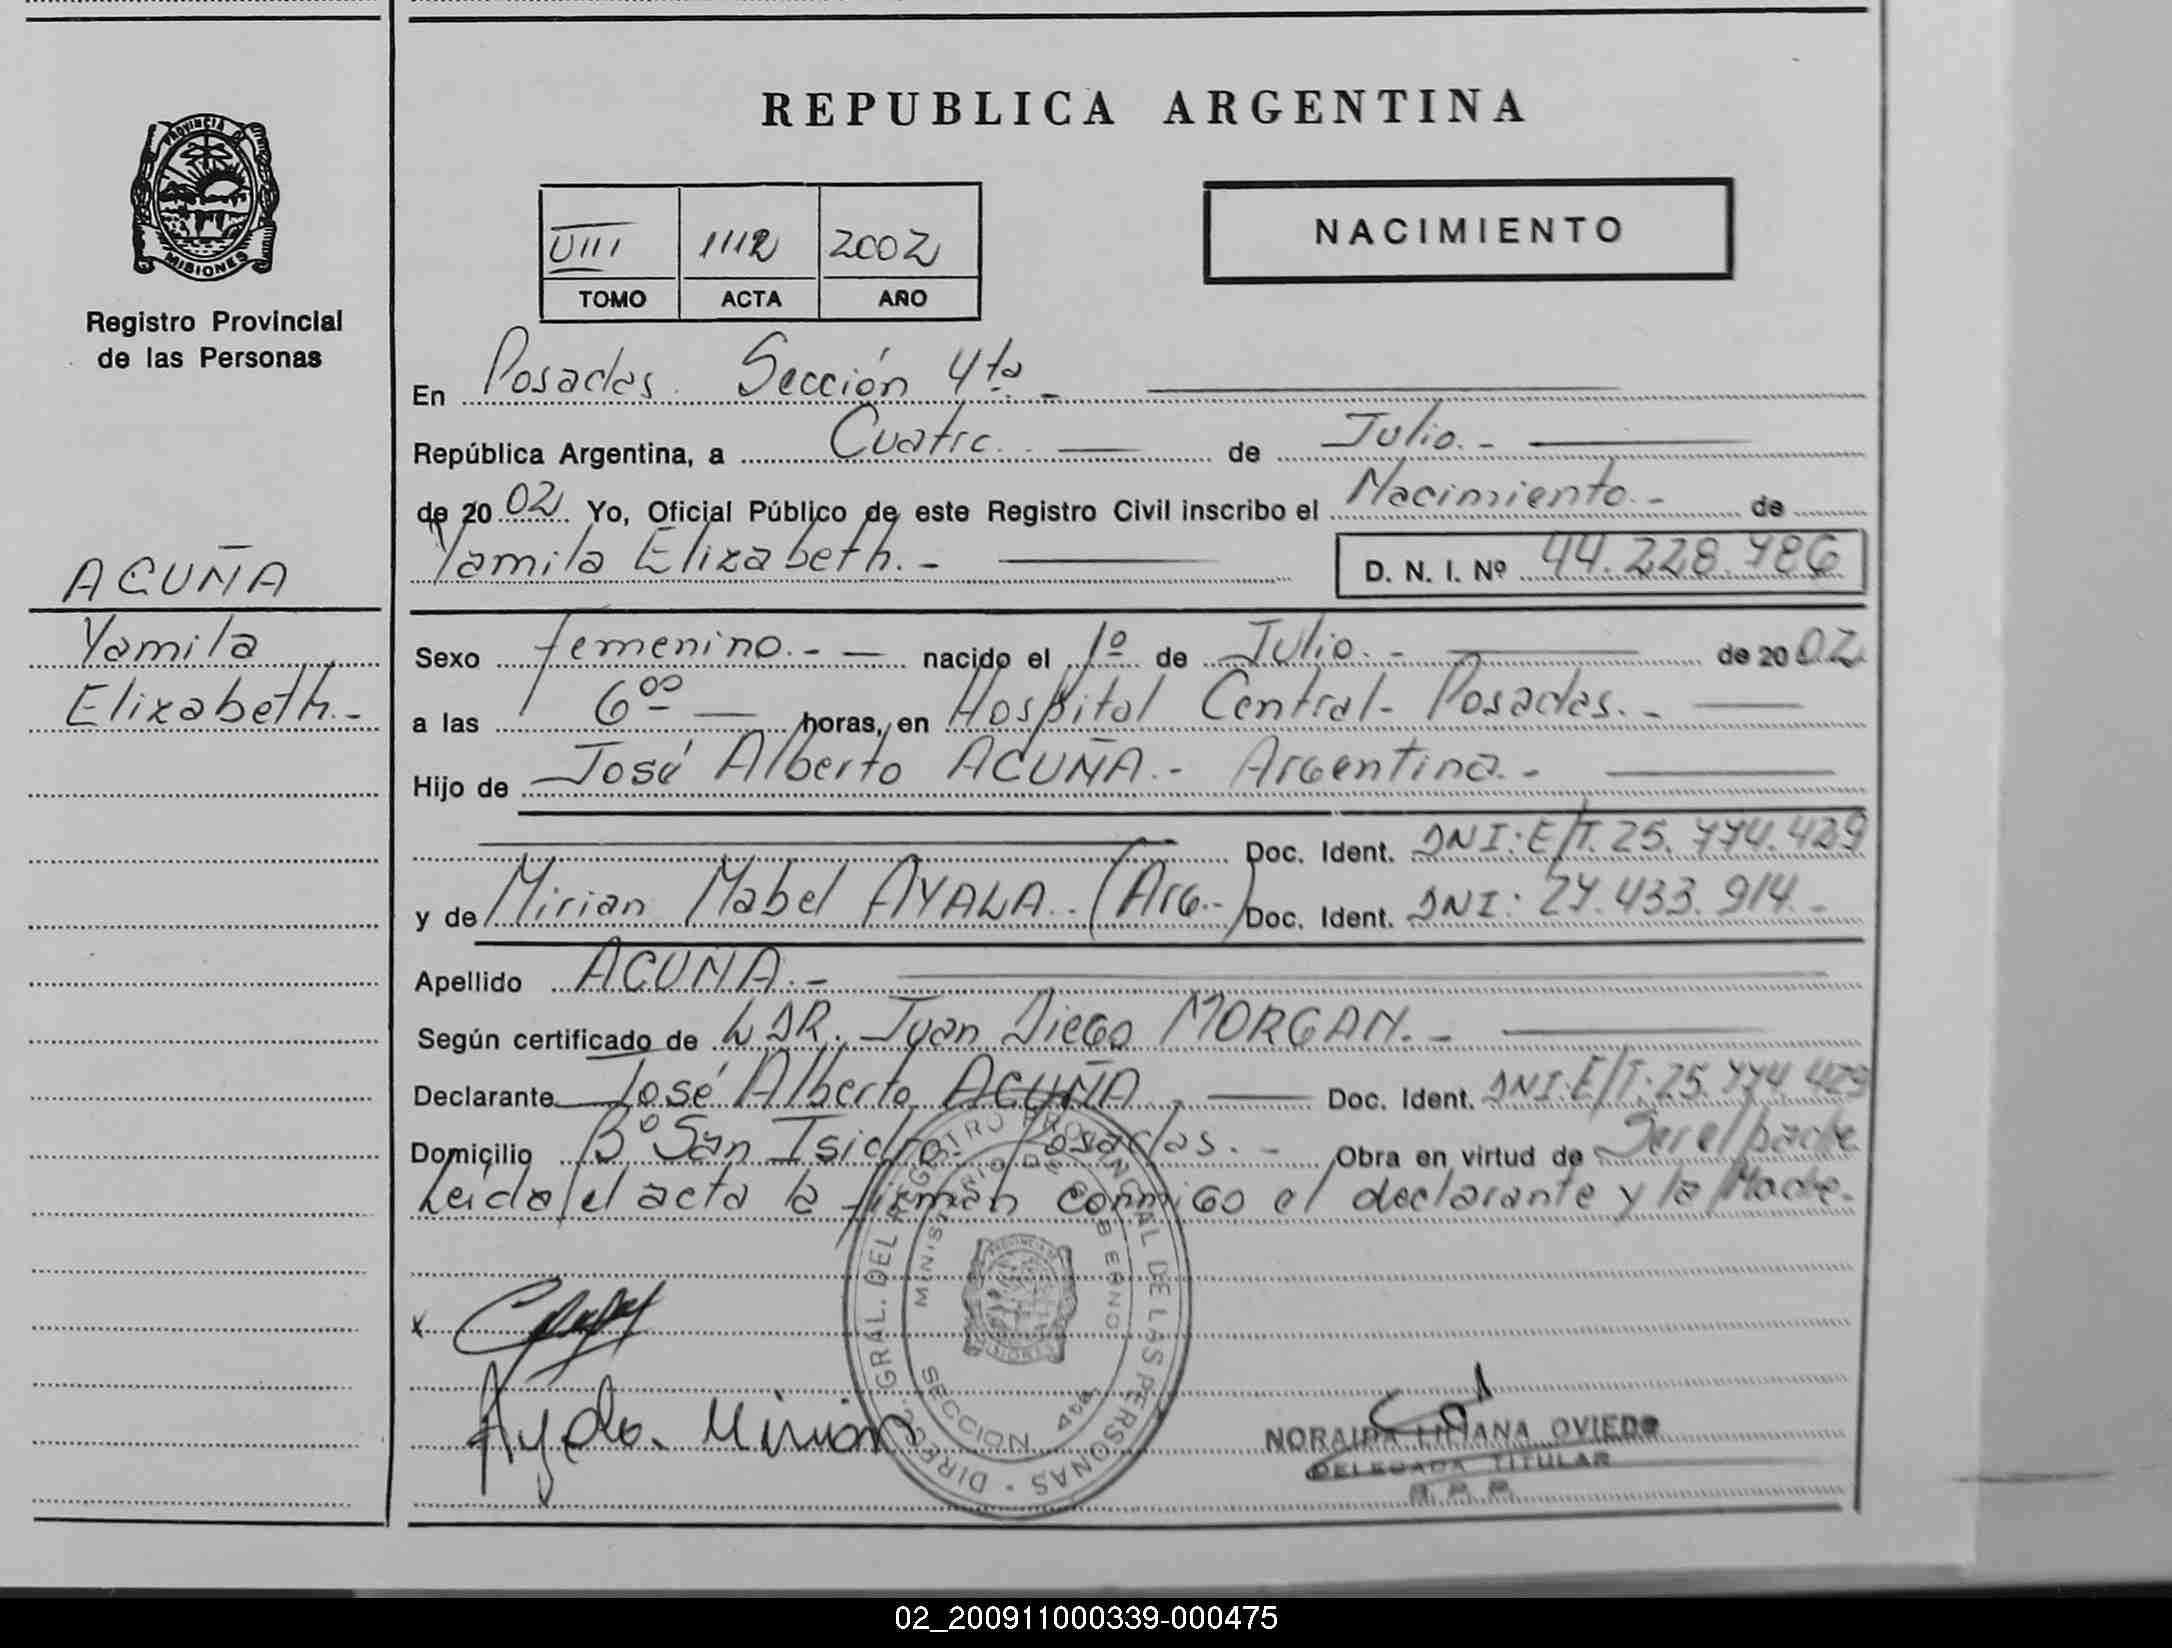 REPUBLICA ARGENTINA
PROVINCIA DE
MISIONES
Registro Provincial
de las Personas
VIII 1112 2002
TOMO ACTA AÑO
NACIMIENTO
En Posadas. Sección 4ta.-
República Argentina, a Cuatro. de Julio.-
de 20 02 Yo, Oficial Público de este Registro Civil inscribo el Nacimiento.- de
Yamila Elizabeth.- D. N. I. Nº 44.228.786
ACUÑA
Yamila
Elizabeth.-
Sexo femenino.- nacido el 1º de Julio.- de 20 02
a las 6 00 horas, en Hospital Central- Posadas.-
Hijo de José Alberto ACUÑA.- Argentino.-
Doc. Ident. DNI: E/T. 25.774.429
y de Mirian Mabel AYALA.. (Arg.-) Doc. Ident. DNI: 27.433.914.-
Apellido ACUÑA.-
Según certificado de DR. Juan Diego MORGAN.-
Declarante José Alberto ACUÑA Doc. Ident. DNI: E/T. 25.774.429
Domicilio Bº San Isidro- Posadas.- Obra en virtud de Ser el padre
Leida el acta la firman conmigo el declarante y la Madre.-
DIRECC. GRAL. DEL REGISTRO PROVINCIAL DE LAS PERSONAS
MINISTERIO DE GOBIERNO
PROVINCIA DE
MISIONES
SECCION 4ta.
x
Ayala. Mirian
NORAIDA LILIANA OVIEDO
DELEGADA TITULAR
R. P. P.
02_200911000339-000475